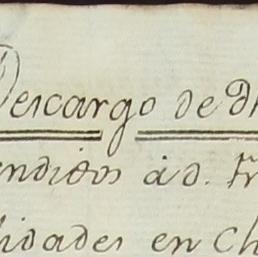 Descargo de
ndidos á d. Fr
lidades en Ch